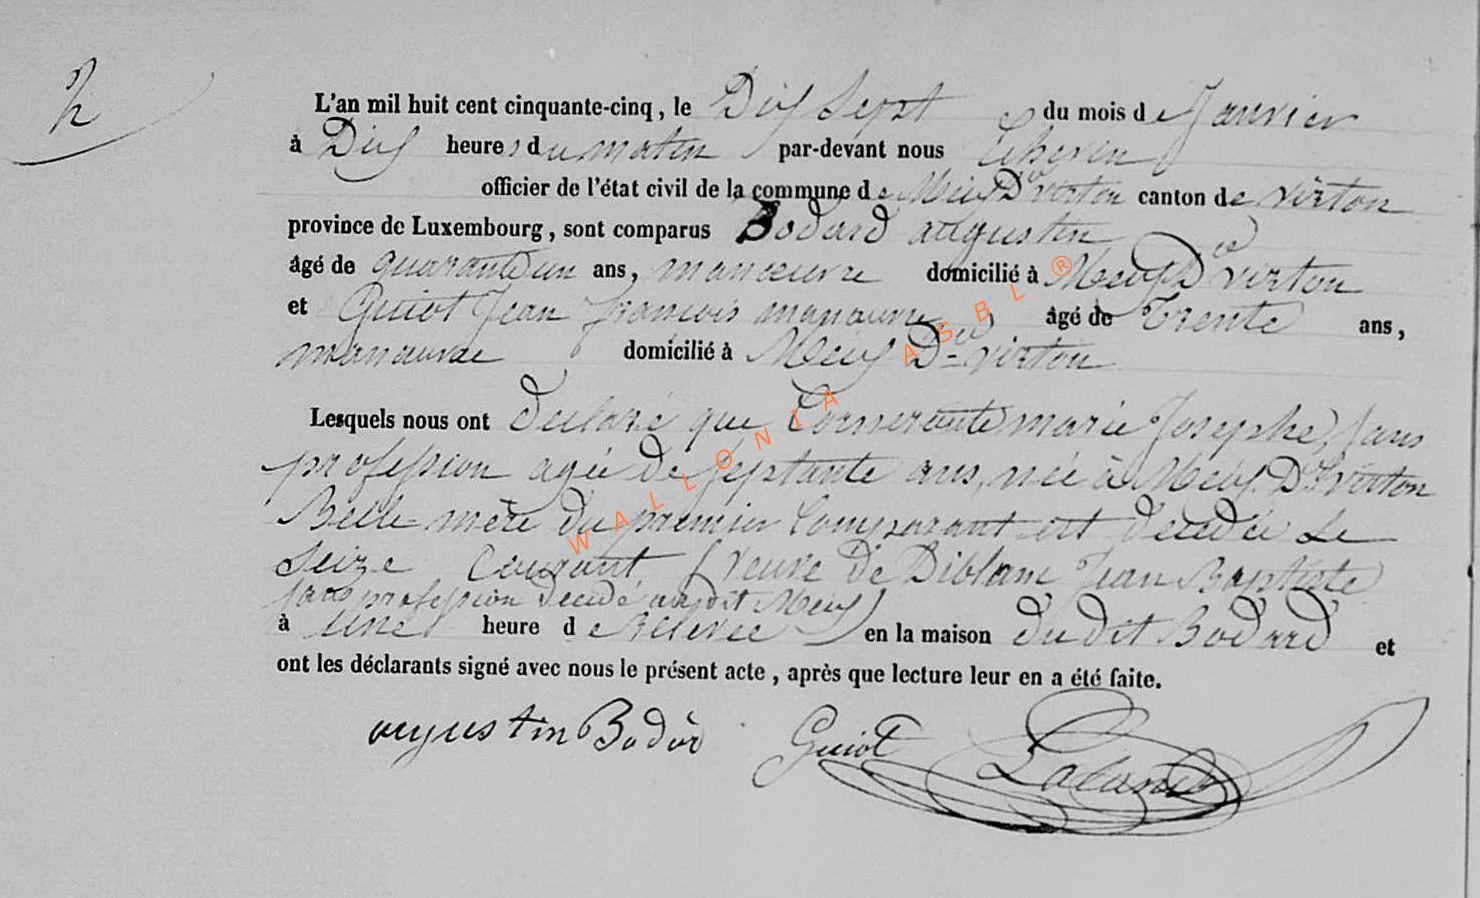 2
L'an mil huit cent cinquante-cinq, le Dix Sept du mois de Janvier
à Dix heures du matin par-devant nous Echevin
officier de l'état civil de la commune de Meix Dt virton canton de virton
province de Luxembourg, sont comparus Bodard augustin
âgé de quarante un ans, manoeuvre domicilié à Meix Dt virton
et Guiot Jean françois manoeuvre âgé de Trente ans,
manoeuvre domicilié à Meix Dt virton
Lesquels nous ont declaré que marie Josephe, sans
profession agée de septante ans, née à Meix Dt virton
Belle mère du premier Comparant est decedée Le
Seize Courant (veuve de Jean Baptiste
sans profession decedé audit Meix)
à une heure de Relevée en la maison dudit Bodard et
ont les déclarants signé avec nous le présent acte, après que lecture leur en a été faite.
augustin Bodar Guiot
WALLONIA ASBL ®